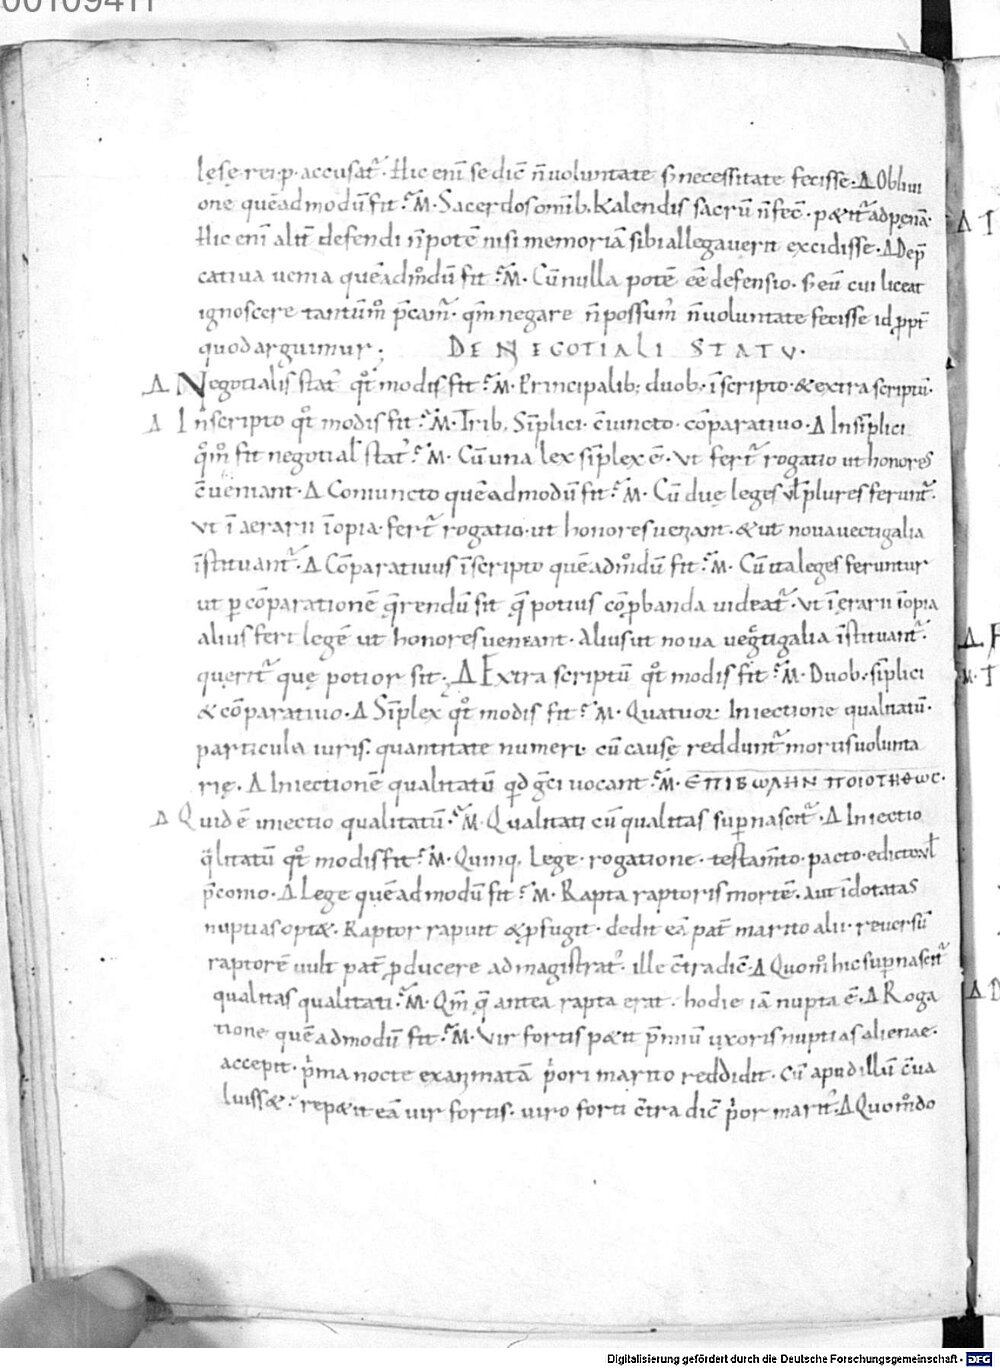 00109411
lęsę rei p. accusat᷑. Hic eni̅ se dic̅ n̅ voluntate s; necessitate fecisse. Δ Oblivi
one que̅admodu̅ fit. M̃. Sacerdos omib. kalendis sacru̅ n̅ fec̅. p&it᷑ ad pęna̅.
Hic eni̅ alit̅ defendi n̅ pote̅ nisi memoria̅ sibi allegaverit excidisse. Δ Dep̅
cativa venia que̅adm̊du̅ fit. M̃. Cu̅ nulla pote̅ e̅e defensio. s; eu̅ cui liceat
ignoscere tantu̅m̊ p̅cam᷑. qm̅ negare n̅ possum᷒ n̅ voluntate fecisse id ppt̅
quod arguimur;
DE NEGOTIALI STATU.
Δ. Negotialis stat᷒ qt̊ modis fit. M̃. Principalib; duob. i̅ scripto & extra scriptu̅.
Δ In̅ scripto qt̊ modis fit. M̃. Trib. Si̅plici. c̅iuncto. co̅parativo. Δ In si̅plici
qm̊ fit negotial᷒ stat᷒. M̃. Cu̅ una lex si̅plex e̅. Ut fert᷑ rogatio ut honores
ę̅veniant. Δ Coniuncto que̅admodu̅ fit. M̃. Cu̅ duę leges vl̅ plures ferunt᷑.
Ut i̅ aerarii i̅opia. fert᷑ rogatio. ut honores veniant. & ut nova vectigalia
i̅stituant᷑. Δ Co̅parativus i̅ scripto que̅adm̊du̅ fit. M̃. Cu̅ ita leges feruntur
ut p co̅paratione̅ q̅rendu̅ sit q̅ potius co̅pbanda videat᷑. Ut i̅ ęrarii i̅opia
alius fert lege̅ ut honores veneant. Alius ut nova vegtigalia i̅stituant᷑.
querit᷑ quę potior sit. Δ Extra scriptu̅ qt̊ modis fit. M̃. Duob. si̅plici
& co̅parativo. Δ Si̅plex qt̊ modis fit. M̃. Quatuor. Iniectione qualitatu̅.
particula iuris. quantitate numeri. cu̅ causę reddunt᷑ mortis volunta
rię. Δ Iniectione̅ qualitatu̅ qd g̅ci vocant. M̃. ЄΠΙΒωΛΗΝ ΠΟΙΟΤΗΘωC.
Δ Quid e̅ iniectio qualitatu̅. M̃. Qualitati cu̅ qualitas supnascit᷑. Δ Iniectio
q̊litatu̅ qt̊ modis fit. M̃. Quinq. Lege. rogatione. testam̅to. pacto. edicto vl̅
p̅conio. Δ Lege que̅admodu̅ fit. M̃. Rapta raptoris morte̅. aut i̅dotatas
nuptias opt&. Raptor rapuit & pfugit. dedit ea̅ pat̅ marito alii. reversu̅
raptore̅ vult pat̅ pducere ad magistrat᷒. ille c̅tradic̅. Δ Quom̊ hic supnascit᷑
qualitas qualitati. M̃. Qm̅ q̅ antea rapta erat. hodie ia̅ nupta e̅. Δ Roga
tione que̅admodu̅ fit. M̃. Vir fortis p&iit p̅miu̅ uxoris nuptias alienae.
accepit. p̊ma nocte exanimata̅ p̊ori marito reddidit. Cu̅ apud illu̅ c̅va
luiss&. rep&iit ea̅ vir fortis. viro forti c̅tra dic̅ p̊or marit᷒. Δ Quom̊do
Digitalisierung gefördert durch die Deutsche Forschungsgemeinschaft - DFG